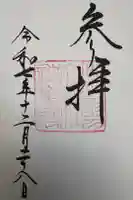 参拝
令和七年十二月二十八日